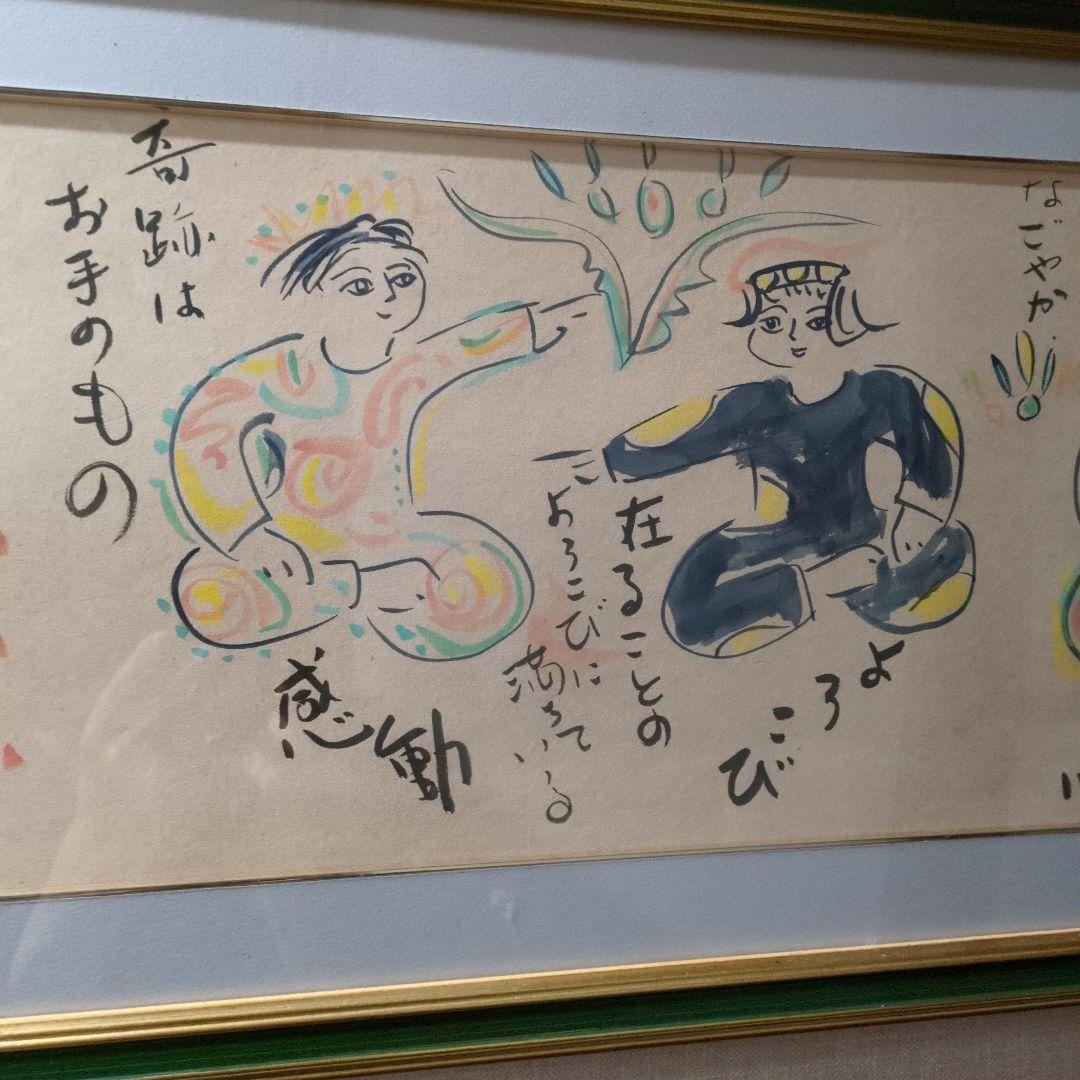 なごやか
よろこび
在ることの
よろこびに
満ちている
感動
奇跡は
お手のもの